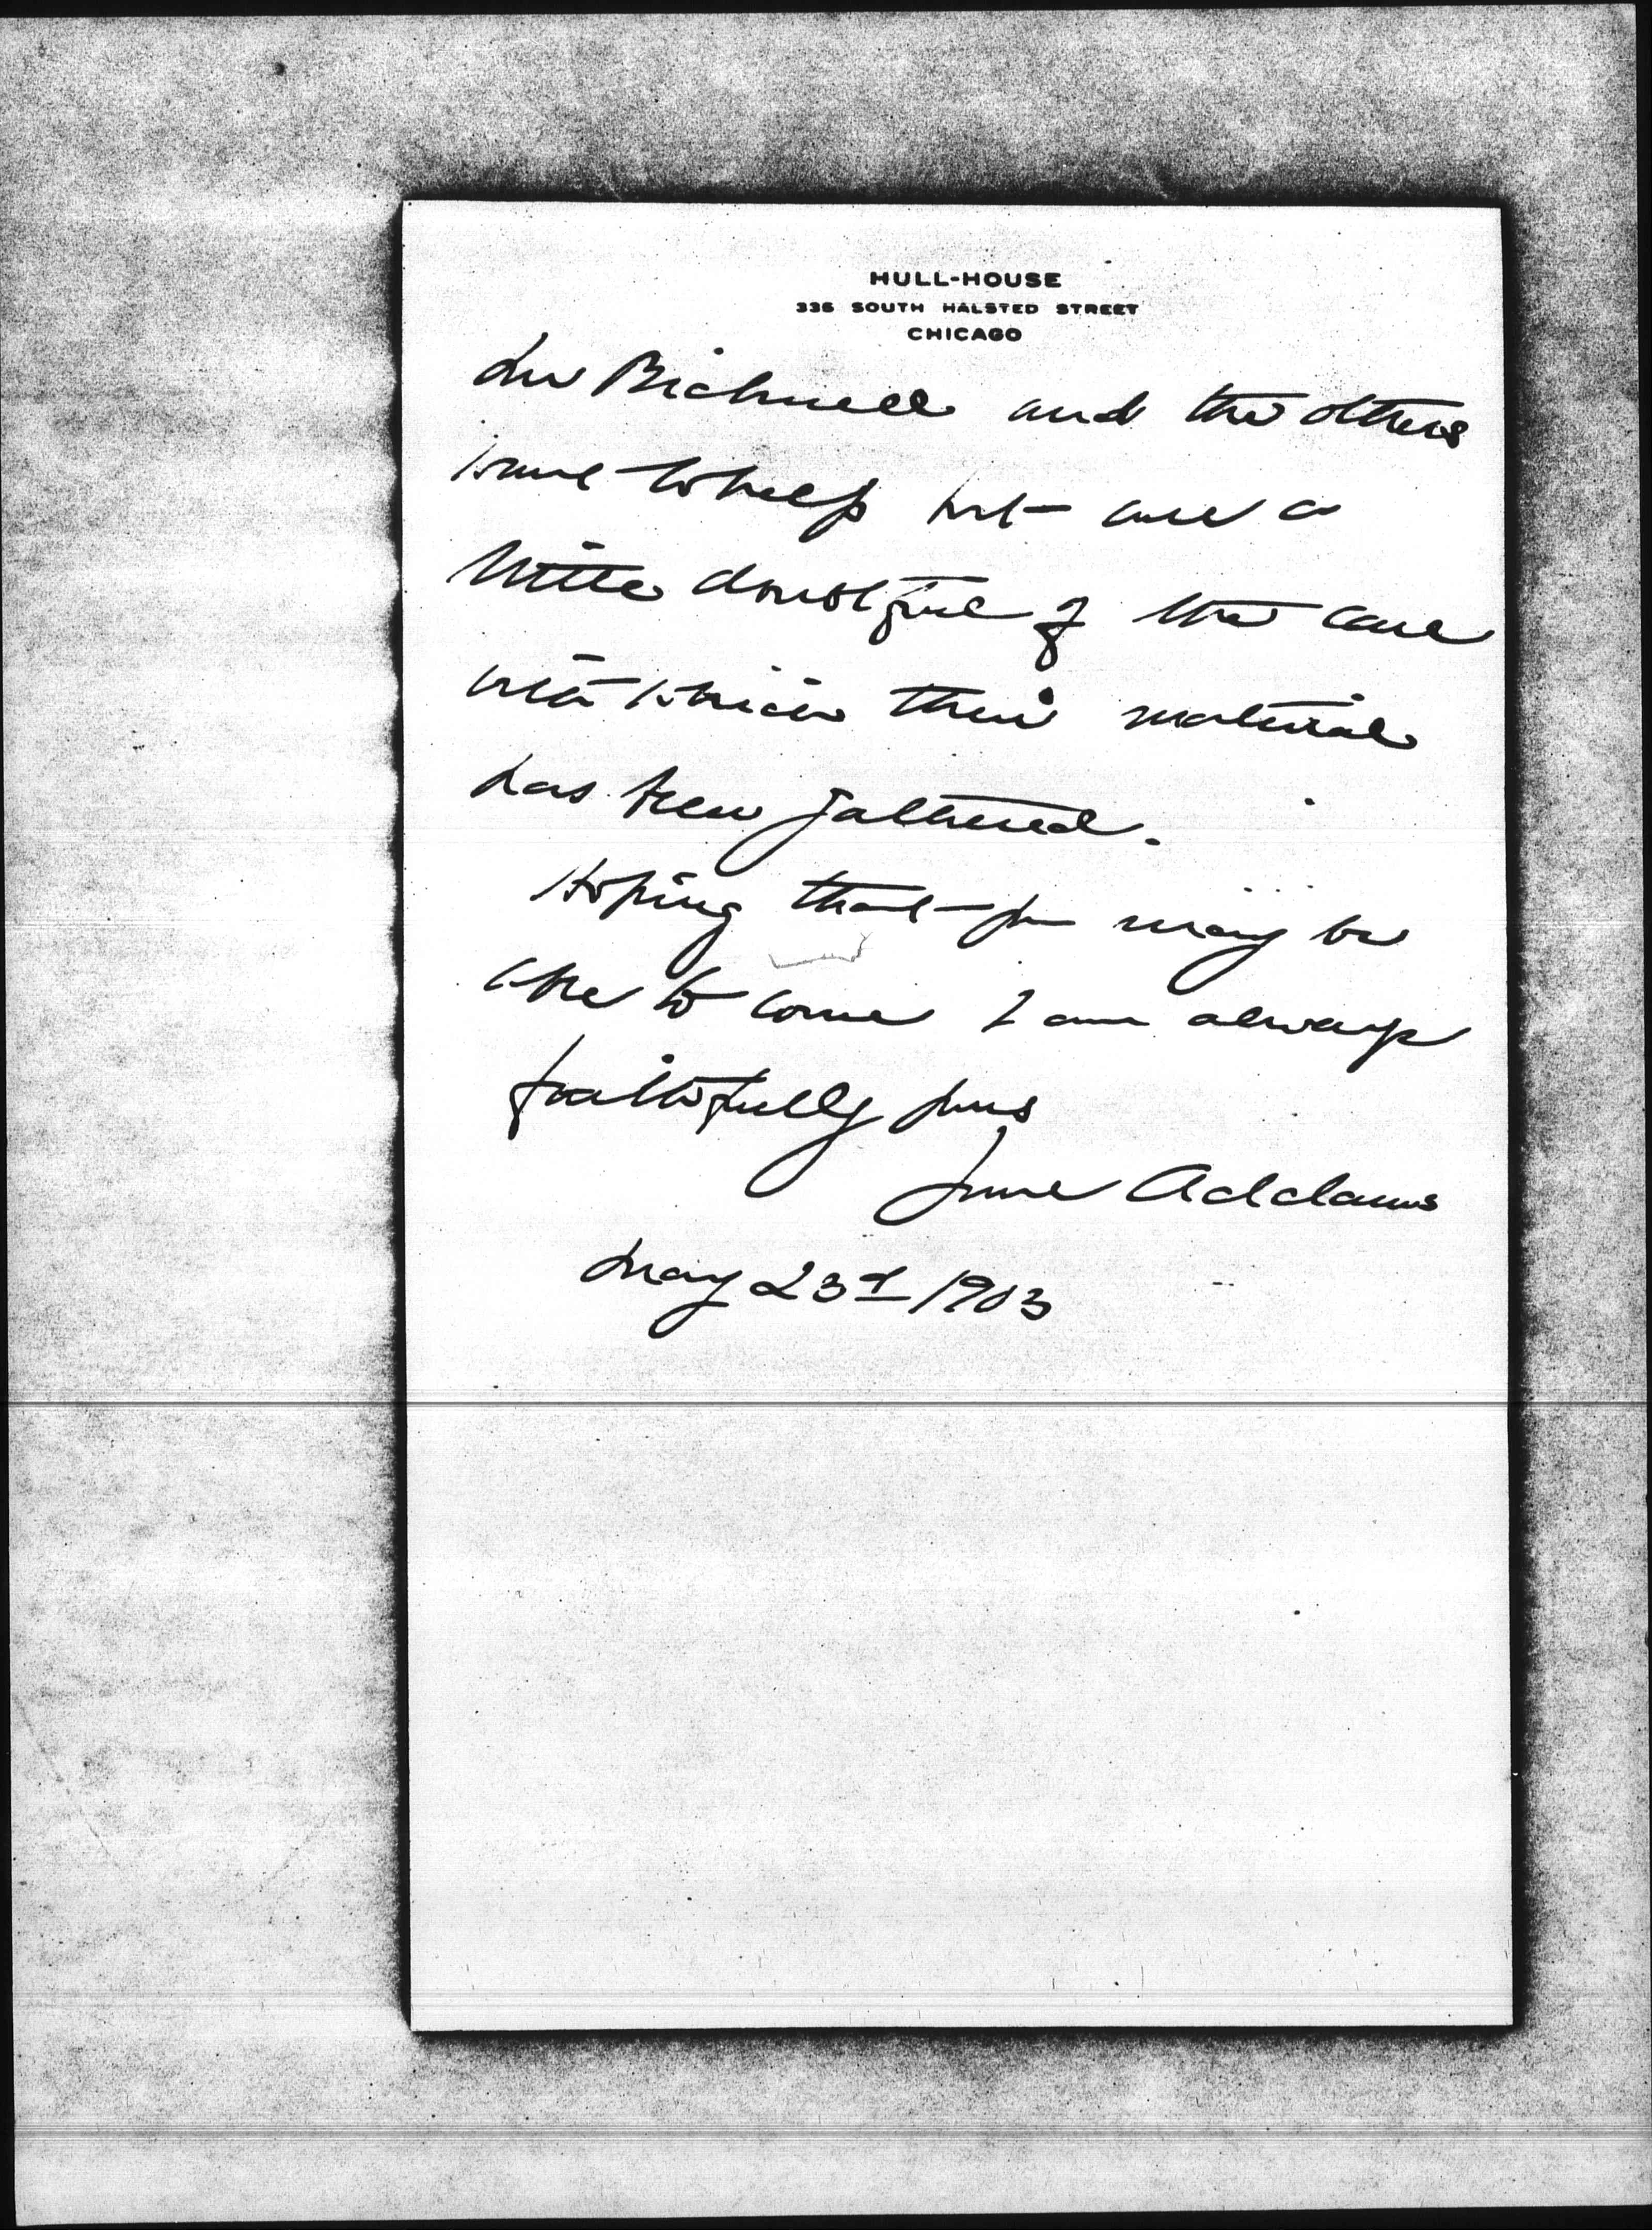 HULL-HOUSE
335 SOUTH HALSTED STREET
CHICAGO
Mr Bicknell and the others
want to help but are a
little doubtful of the care
with which their material
has been gathered.
Hoping that you may be
able to come I am always
faithfully yours
Jane Addams
May 23d 1903